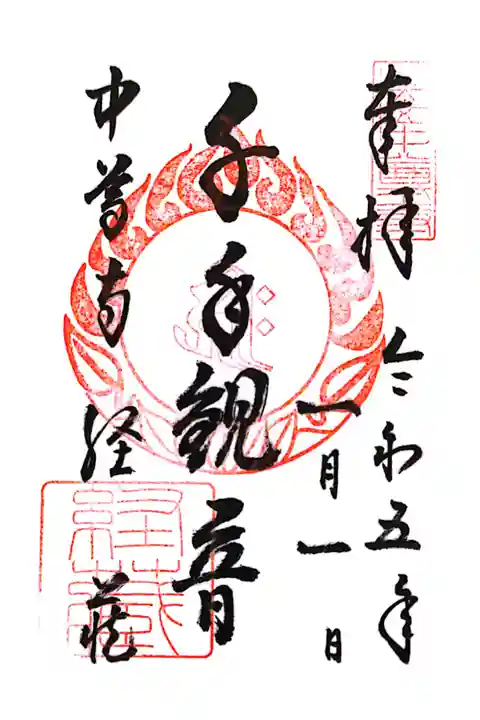 奉拝
令和五年
一月一日
千手観音
中尊寺 経蔵
経蔵